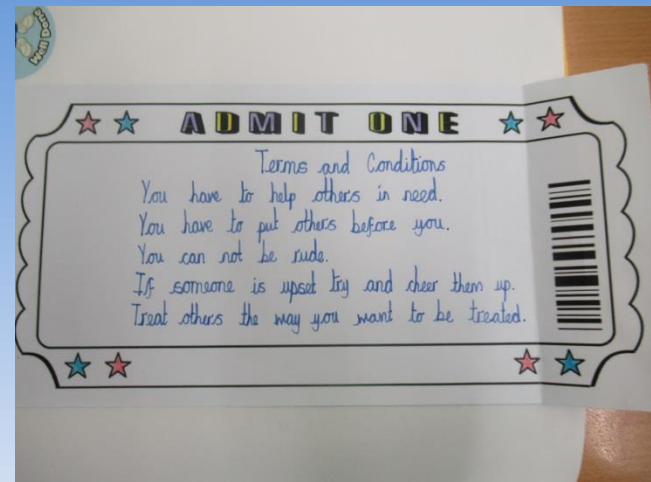 Well Done
ADMIT ONE
Terms and Conditions
You have to help others in need.
You have to put others before you.
You can not be rude.
If someone is upset try and cheer them up.
Treat others the way you want to be treated.